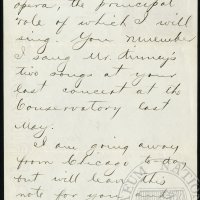 opera, the principal
role of which I will
sing. You remember
I sang Mr. Kinney's
two songs at your
last concert at the
Conservatory last
May.
I am going away
from Chicago to-day
but will leave this
note for you and